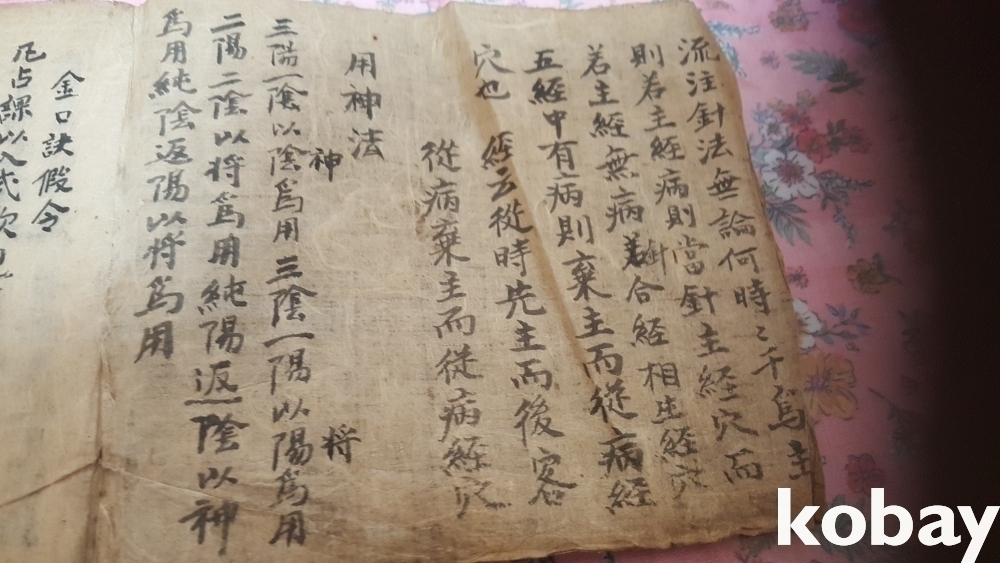 流注針法無論何時〻千爲主
則若主經病則當針主經穴而
若主經無病若針合經相生經穴
五經中有病則棄主而從病經
穴也 經云從時先主而後客
從病棄主而從病經穴
用神法
神 将
三陽一陰以陰爲用 三陰一陽以陽爲用
二陽二陰以将爲用純陽返陰以神
爲用純陰返陽以将爲用
金口訣假令
凡占課以入式次
kobay